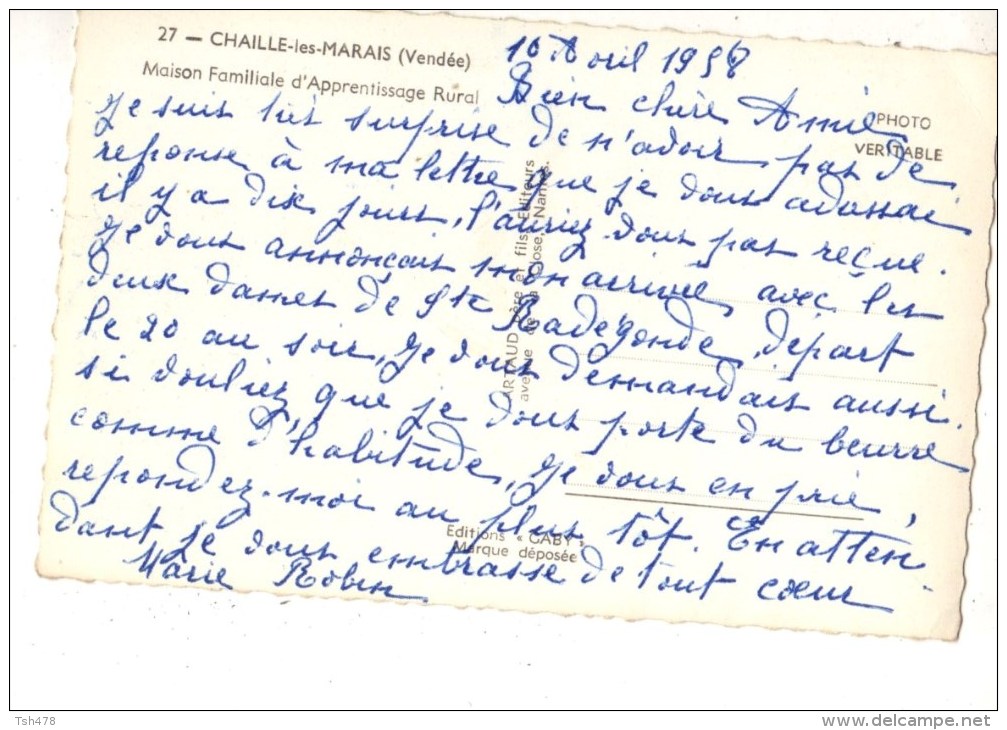 27 — CHAILLE-les-MARAIS (Vendée)
Maison Familiale d'Apprentissage Rural
PHOTO
VERITABLE
10 Avril 1958
Bien chère Amie
Je suis très surprise de n'avoir pas de
reponse à ma lettre que je vous adressai
il y a dix jours, l'auriez vous pas reçue.
Je vous annonçais mon arrivée avec les
deux dames de Ste Radégonde, départ
le 20 au soir, Je vous demandais aussi.
si vouliez que je vous porte du beurre
comme d'habitude, Je vous en prie,
repondez-moi au plus tôt. En atten-
dant je vous embrasse de tout cœur
Marie Robin
ARTAUD Père et fils, Editeurs
avenue de la Close, Nantes.
Editions « GABY »
Marque déposée
Tsh478
www.delcampe.net